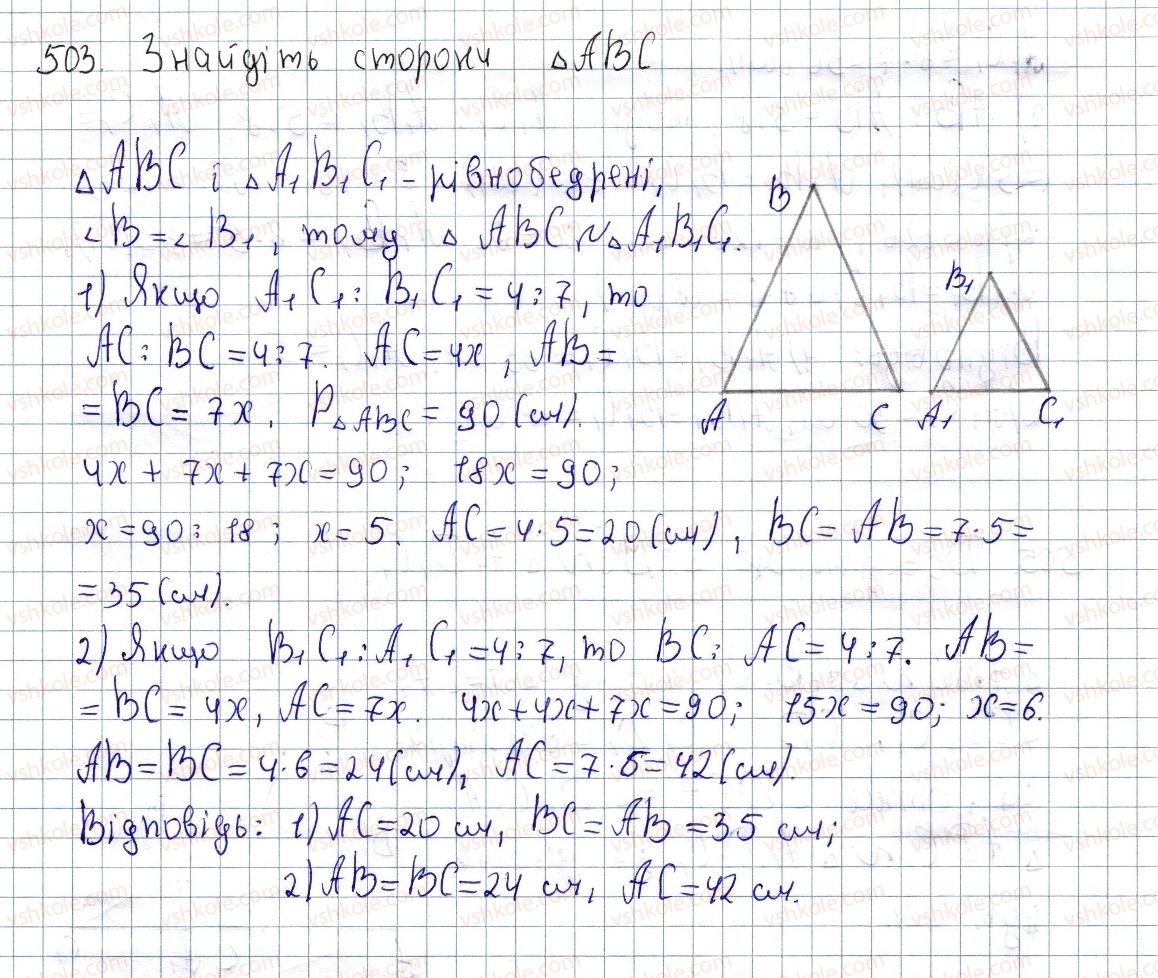 503. Знайдіть сторони △ABC
△ABC і △A₁B₁C₁ – рівнобедрені,
∠B=∠B₁, тому △ ABC ∾ △A₁B₁C₁.
1) Якщо A₁C₁ : B₁C₁ = 4:7, то
AC : BC = 4:7. AC=4x, AB=
= BC = 7x. P△ABC = 90 (см).
4x + 7x + 7x = 90; 18x = 90;
x = 90 : 18; x = 5. AC = 4·5=20 (см), BC = AB = 7·5=
= 35 (см).
2) Якщо B₁C₁ : A₁C₁ = 4:7, то BC : AC = 4:7. AB=
= BC = 4x, AC = 7x. 4x+4x+7x=90; 15x = 90; x=6.
AB = BC = 4·6=24 (см), AC = 7·6=42 (см).
Відповідь: 1) AC=20 см, BC = AB = 35 см;
2) AB=BC=24 см, AC=42 см.
B
A
C
B₁
A₁
C₁
vshkole.com